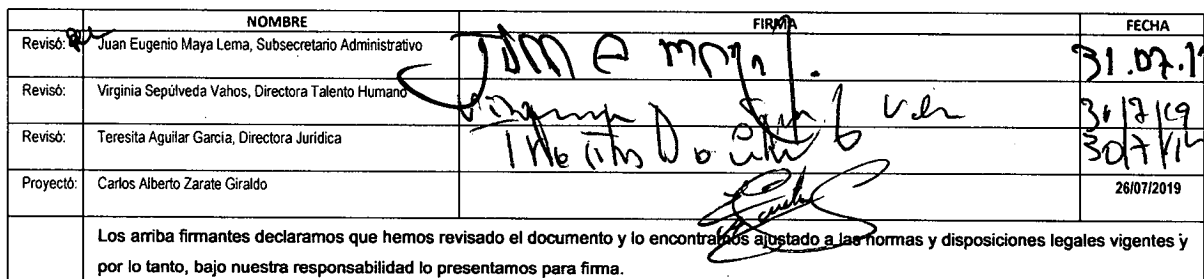 NOMBRE FIRMA FECHA
Revisó: Juan Eugenio Maya Lema, Subsecretario Administrativo 31.07.1
Revisó: Virginia Sepúlveda Vahos, Directora Talento Humano
Revisó: Teresita Aguilar García, Directora Jurídica 30/7/
Proyectó: Carlos Alberto Zarate Giraldo 26/07/2019
Los arriba firmantes declaramos que hemos revisado el documento y lo encontramos ajustado a las normas y disposiciones legales vigentes y
por lo tanto, bajo nuestra responsabilidad lo presentamos para firma.